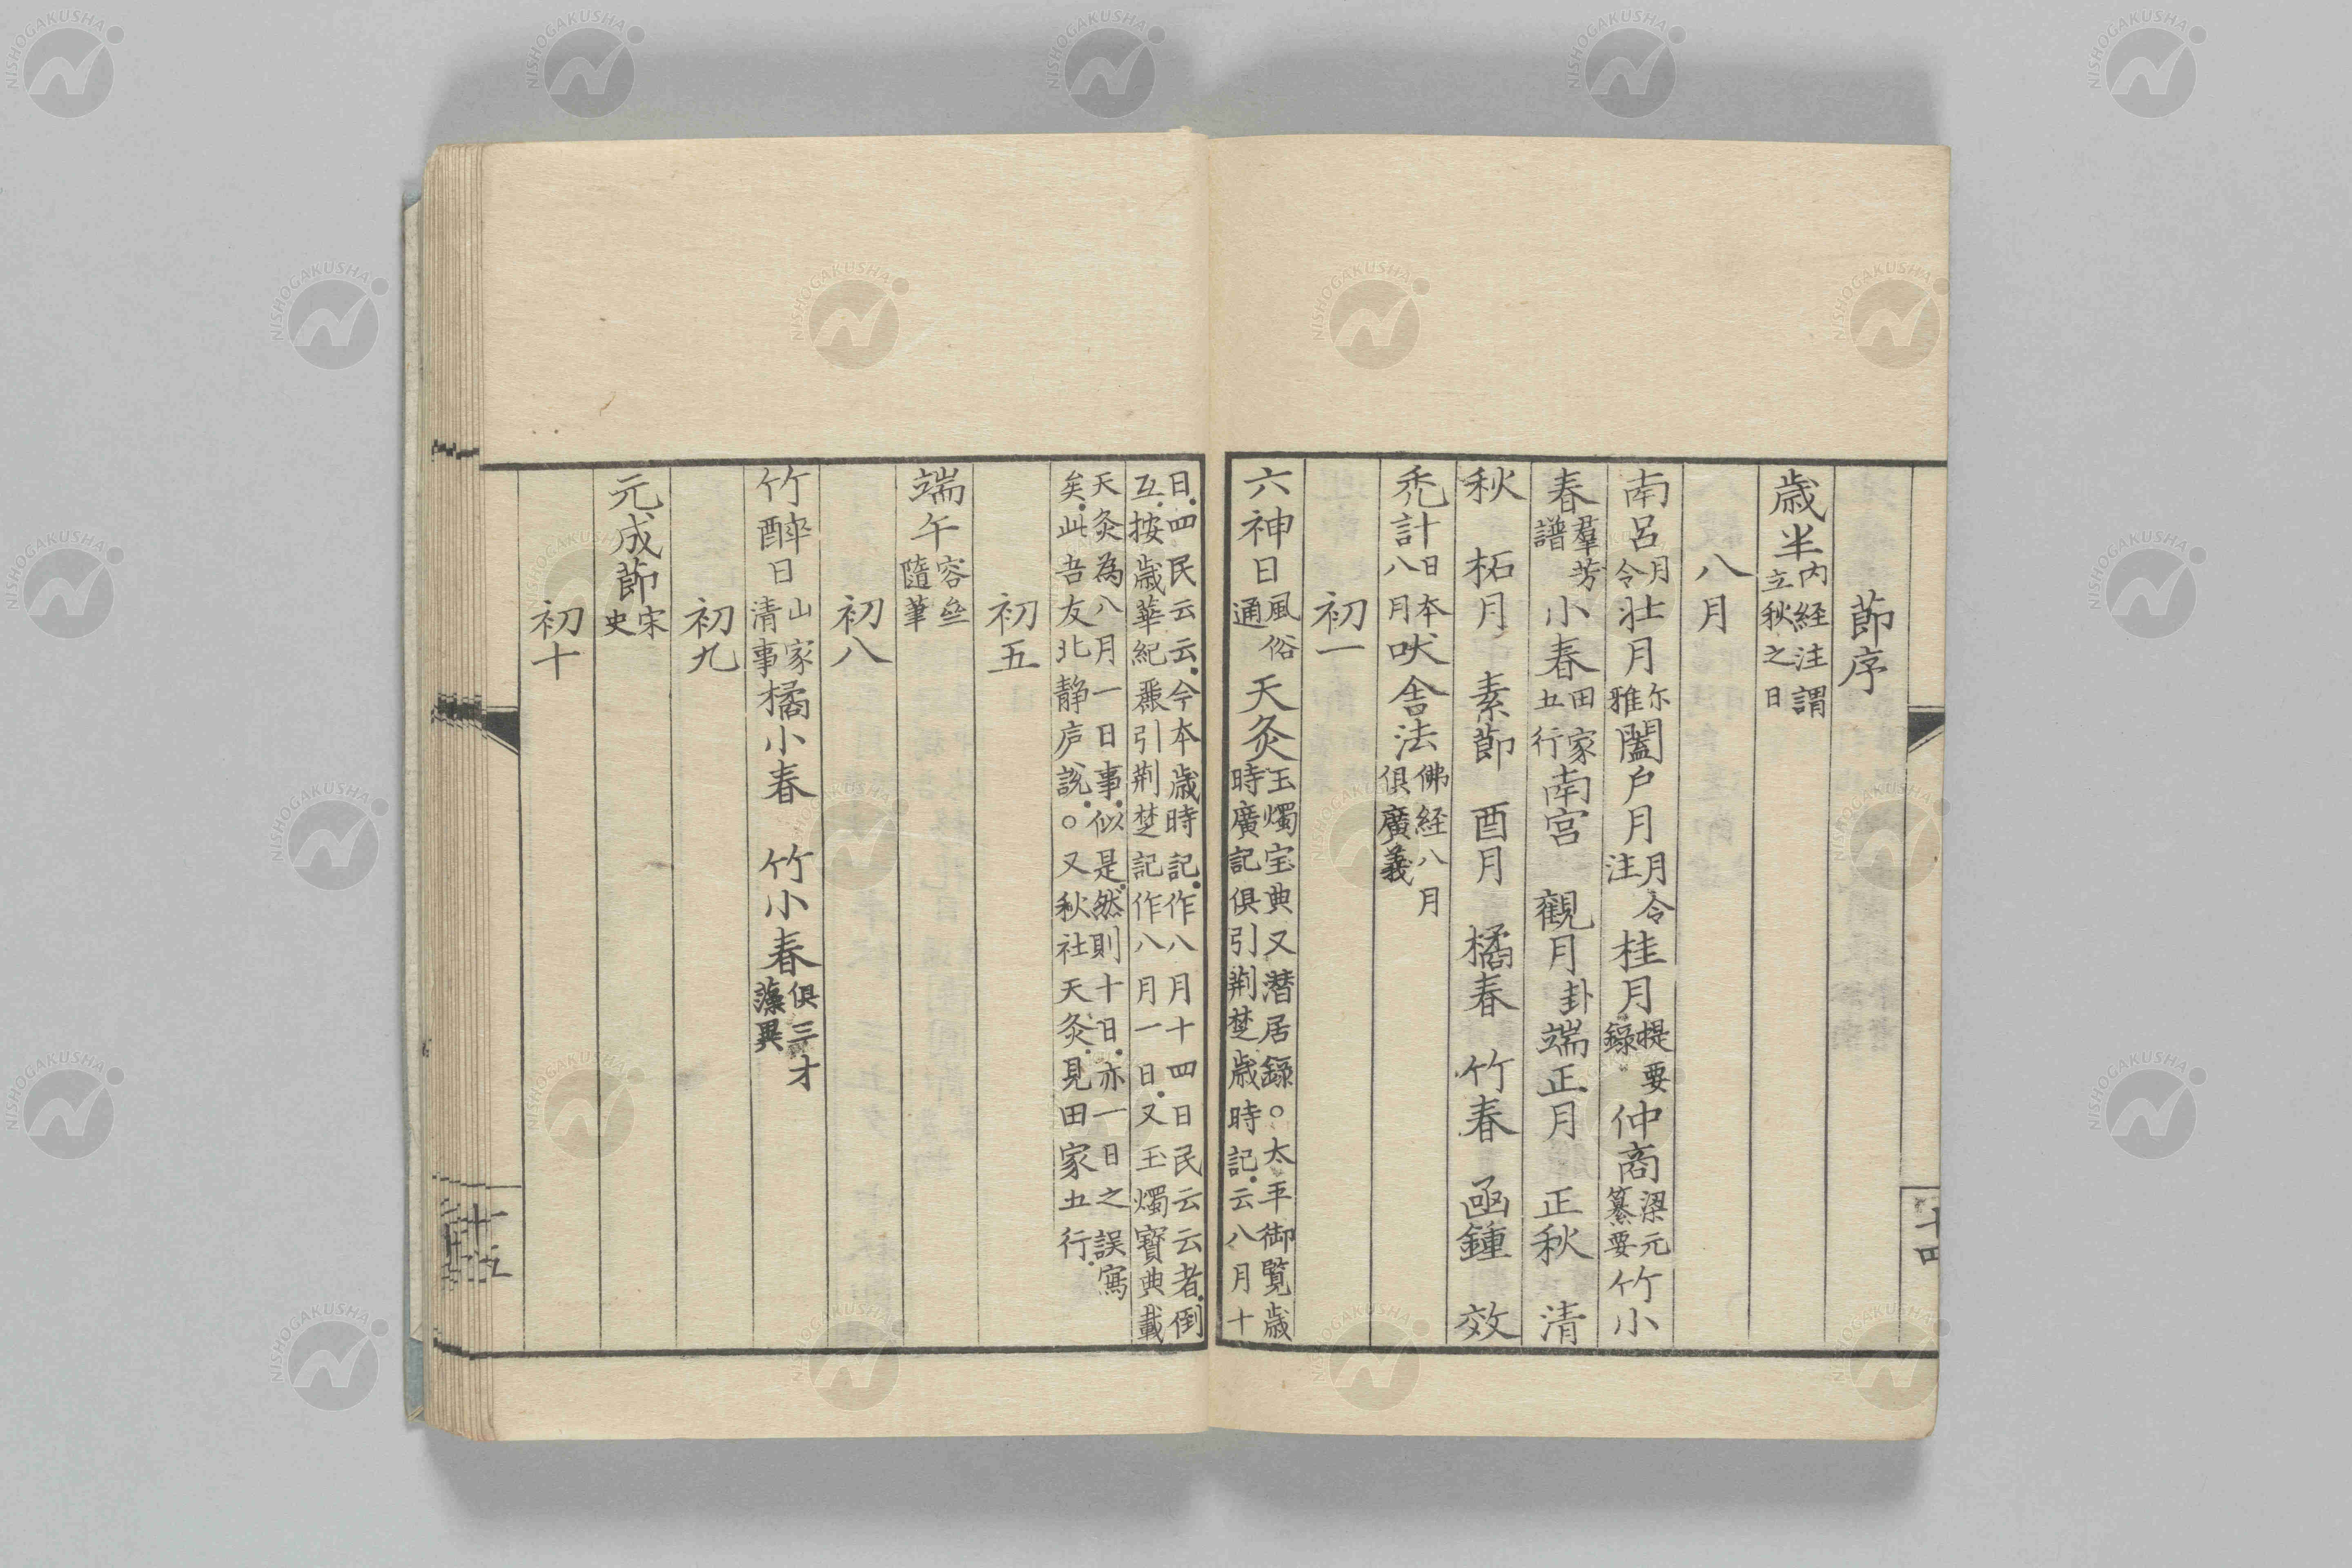 節序
歳半内経注謂立秋之日
八月
南呂月令壮月尓雅闔戸月月令注桂月提要録仲商梁元纂要竹小
春羣芳譜小春田家五行南宮 觀月卦端正月 正秋 清
秋 柘月 素節 酉月 橘春 竹春 凾鍾 效
禿計日本八月吠舎法佛経八月俱廣義
初一
六神日風俗通天灸玉燭宝典又潜居録○太平御覧歳時廣記俱引荆楚歳時記云八月十
日四民云云今本歳時記作八月十四日民云云者倒互按歳華紀麗引荆楚記作八月一日又玉燭寶典載
天灸為八月一日事似是然則十日亦一日之誤寫矣此吾友北静庐説○又秋社天灸見田家五行
初五
端午容𠫤隨筆
初八
竹醉日山家清事橘小春 竹小春俱三才藻異
初九
元成節宋史
初十
十四
十五
NISHOGAKUSHA